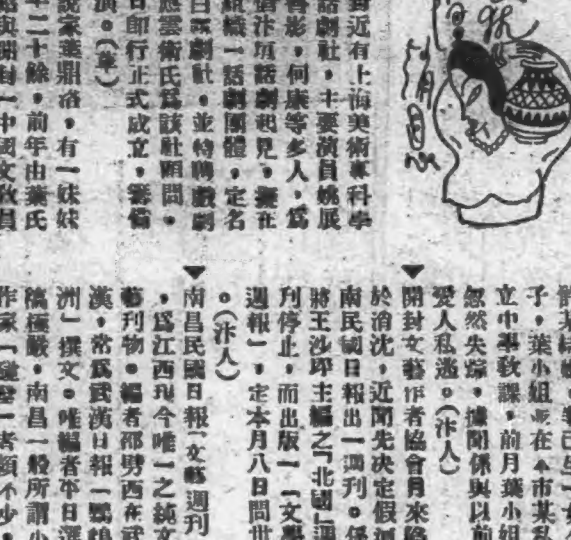 封近有上海美術專科學
話劇社，主要演員姚展
香影，何康等多人，爲
倡汴項話劇起見，擬在
組織一話劇團體，定名
白話劇社，並特聘戲劇
應雲衛氏爲該社顧問。
日卽行正式成立，籌備
演。（革）
說家葉鼎洛，有一妹妹
年二十餘，前年由葉氏
紹與開封一中國文敎員
子，葉小姐亦在本市某私
立中學敎課，前月葉小姐
忽然失踪，據聞係與以前
愛人私逃。（汴人）
▼開封文藝作者協會月來陷
於消沈，近聞先決定假河
南民國日報出一週刊。係
將王沙坪主編之「北國」週
刊停止，而出版一「文學
週報」，定本月八日問世
。（汴人）
▼南昌民國日報「文藝週刊
，爲江西現今唯一之純文
藝刊物。編者邵男西在武
漢，常爲武漢日報「鸚鵡
洲」撰文。唯編者平日選
稿極嚴，南昌一般所謂小
作家「碰壁」者頗不少，